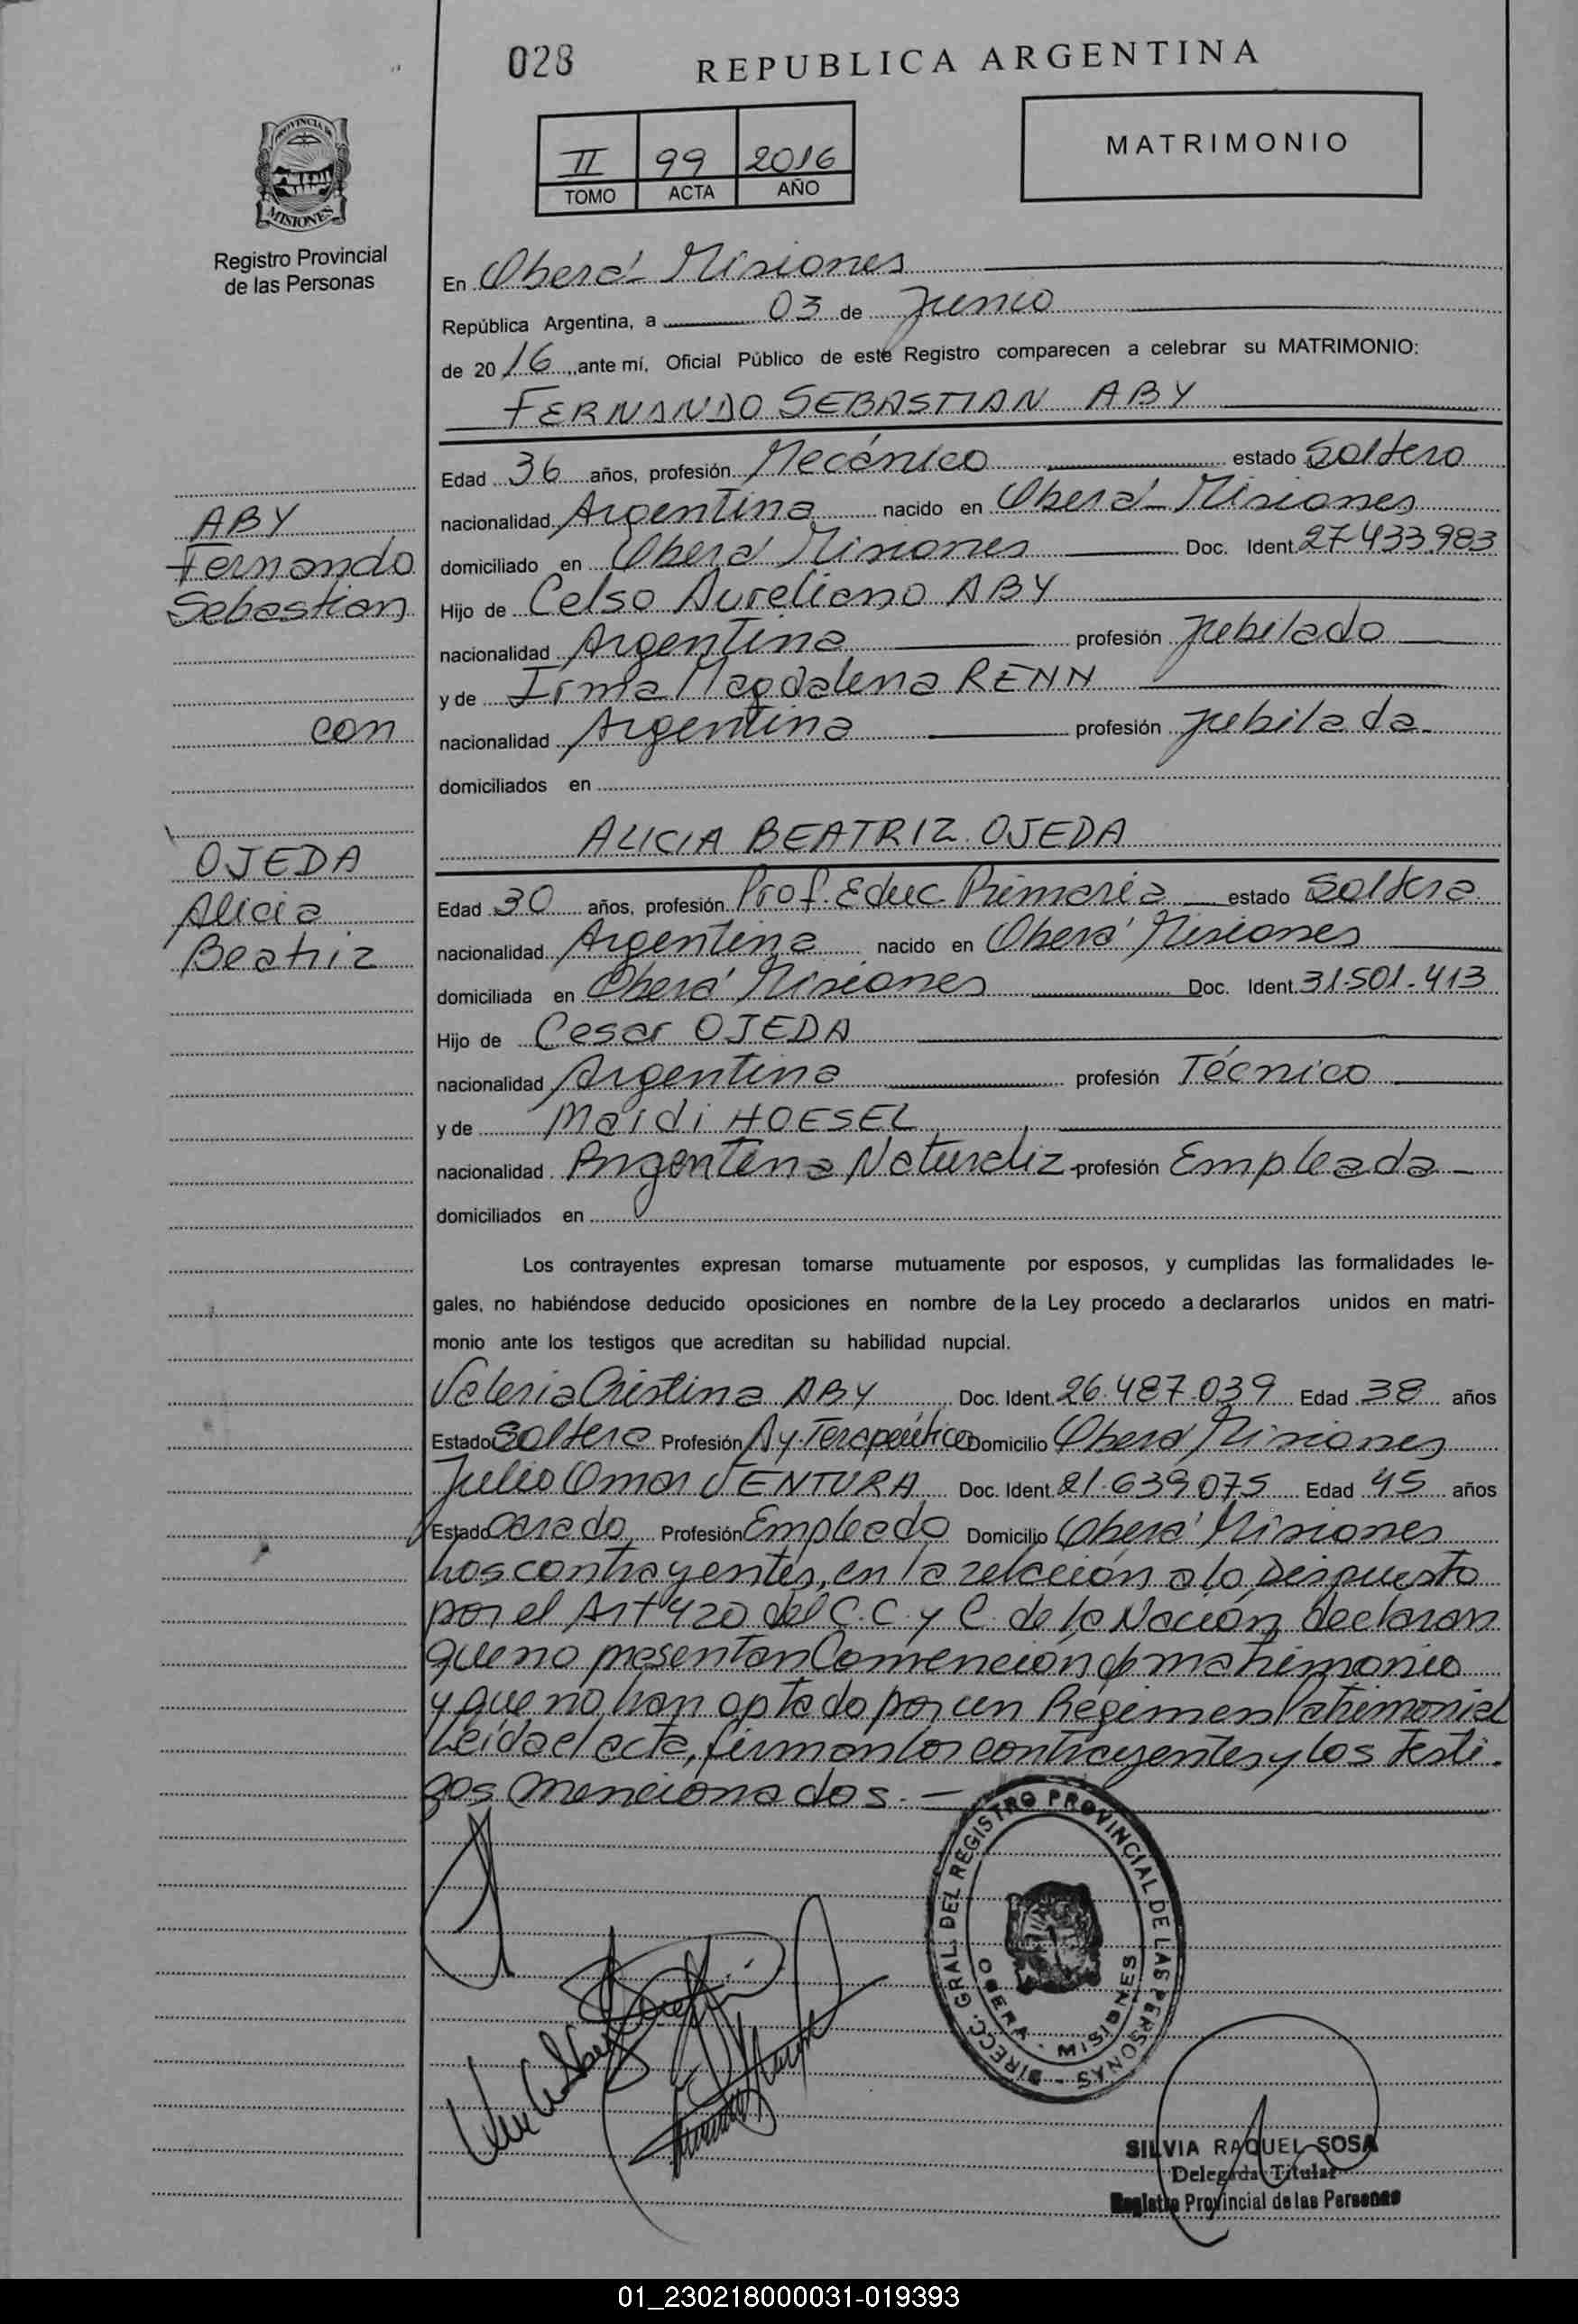 028
REPUBLICA ARGENTINA
PROVINCIA DE
MISIONES
Registro Provincial
de las Personas
II 99 2016
TOMO ACTA AÑO
MATRIMONIO
En Oberá Misiones
República Argentina, a 03 de Junio
de 2016, ante mí, Oficial Público de este Registro comparecen a celebrar su MATRIMONIO:
FERNANDO SEBASTIAN ABY
Edad 36 años, profesión Mecánico estado Soltero
nacionalidad Argentina nacido en Oberá Misiones
domiciliado en Oberá Misiones Doc. Ident. 27.433.983
Hijo de Celso Aureliano ABY
nacionalidad Argentina profesión Jubilado
y de Irma Magdalena RENN
nacionalidad Argentina profesión Jubilada
domiciliados en
ABY
Fernando
Sebastian
con
OJEDA
Alicia
Beatriz
ALICIA BEATRIZ OJEDA
Edad 30 años, profesión Prof. Educ. Primaria estado Soltera
nacionalidad Argentina nacido en Oberá Misiones
domiciliada en Oberá Misiones Doc. Ident. 31.501.413
Hijo de Cesar OJEDA
nacionalidad Argentina profesión Técnico
y de Maidi HOESEL
nacionalidad Argentina Naturaliz profesión Empleada
domiciliados en
Los contrayentes expresan tomarse mutuamente por esposos, y cumplidas las formalidades le-
gales, no habiéndose deducido oposiciones en nombre de la Ley procedo a declararlos unidos en matri-
monio ante los testigos que acreditan su habilidad nupcial.
Valeria Cristina ABY Doc. Ident. 26.487.039 Edad 38 años
Estado Soltera Profesión Ay. Terapeútico Domicilio Oberá Misiones
Julio Omar VENTURA Doc. Ident. 21.639.075 Edad 45 años
Estado Casado Profesión Empleado Domicilio Oberá Misiones
Los contrayentes, en la relación a lo Dispuesto
por el Art 420 del C.C. y C. de la Nación, declaran
que no presentan Convención de matrimonio
y que no han optado por un Régimen Patrimonial
Leída el acta, firman los contrayentes y los testi-
gos mencionados.-
DIRECC. GRAL. DEL REGISTRO PROVINCIAL DE LAS PERSONAS
OBERA - MISIONES
SILVIA RAQUEL SOSA
Delegada Titular
Registro Provincial de las Personas
01_230218000031-019393